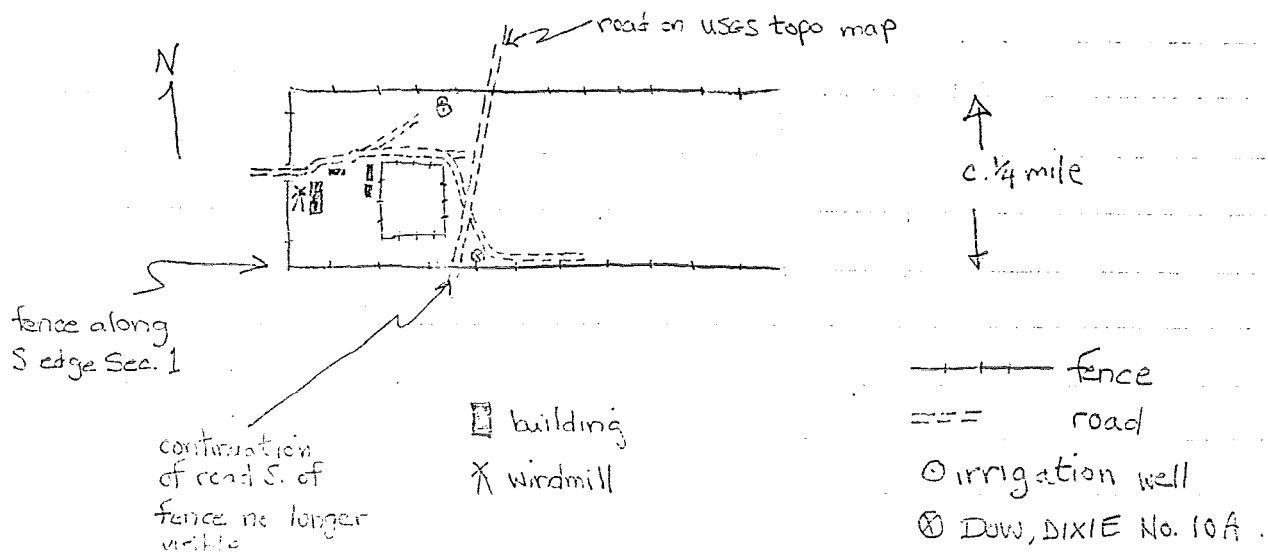 road on USGS topo map
N
c. 1/4 mile
fence along
S edge Sec. 1
continuation
of road S. of
fence no longer
visible
building
windmill
fence
road
irrigation well
DUW, DIXIE No. 10A.